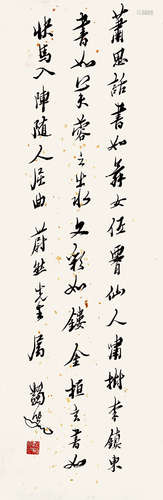 蕭思話書如舞女低腰仙人嘯樹李鎮東
書如芙蓉之出水文彩如鏤金桓玄書如
快馬入陣隨人屈曲 蔚然先生属